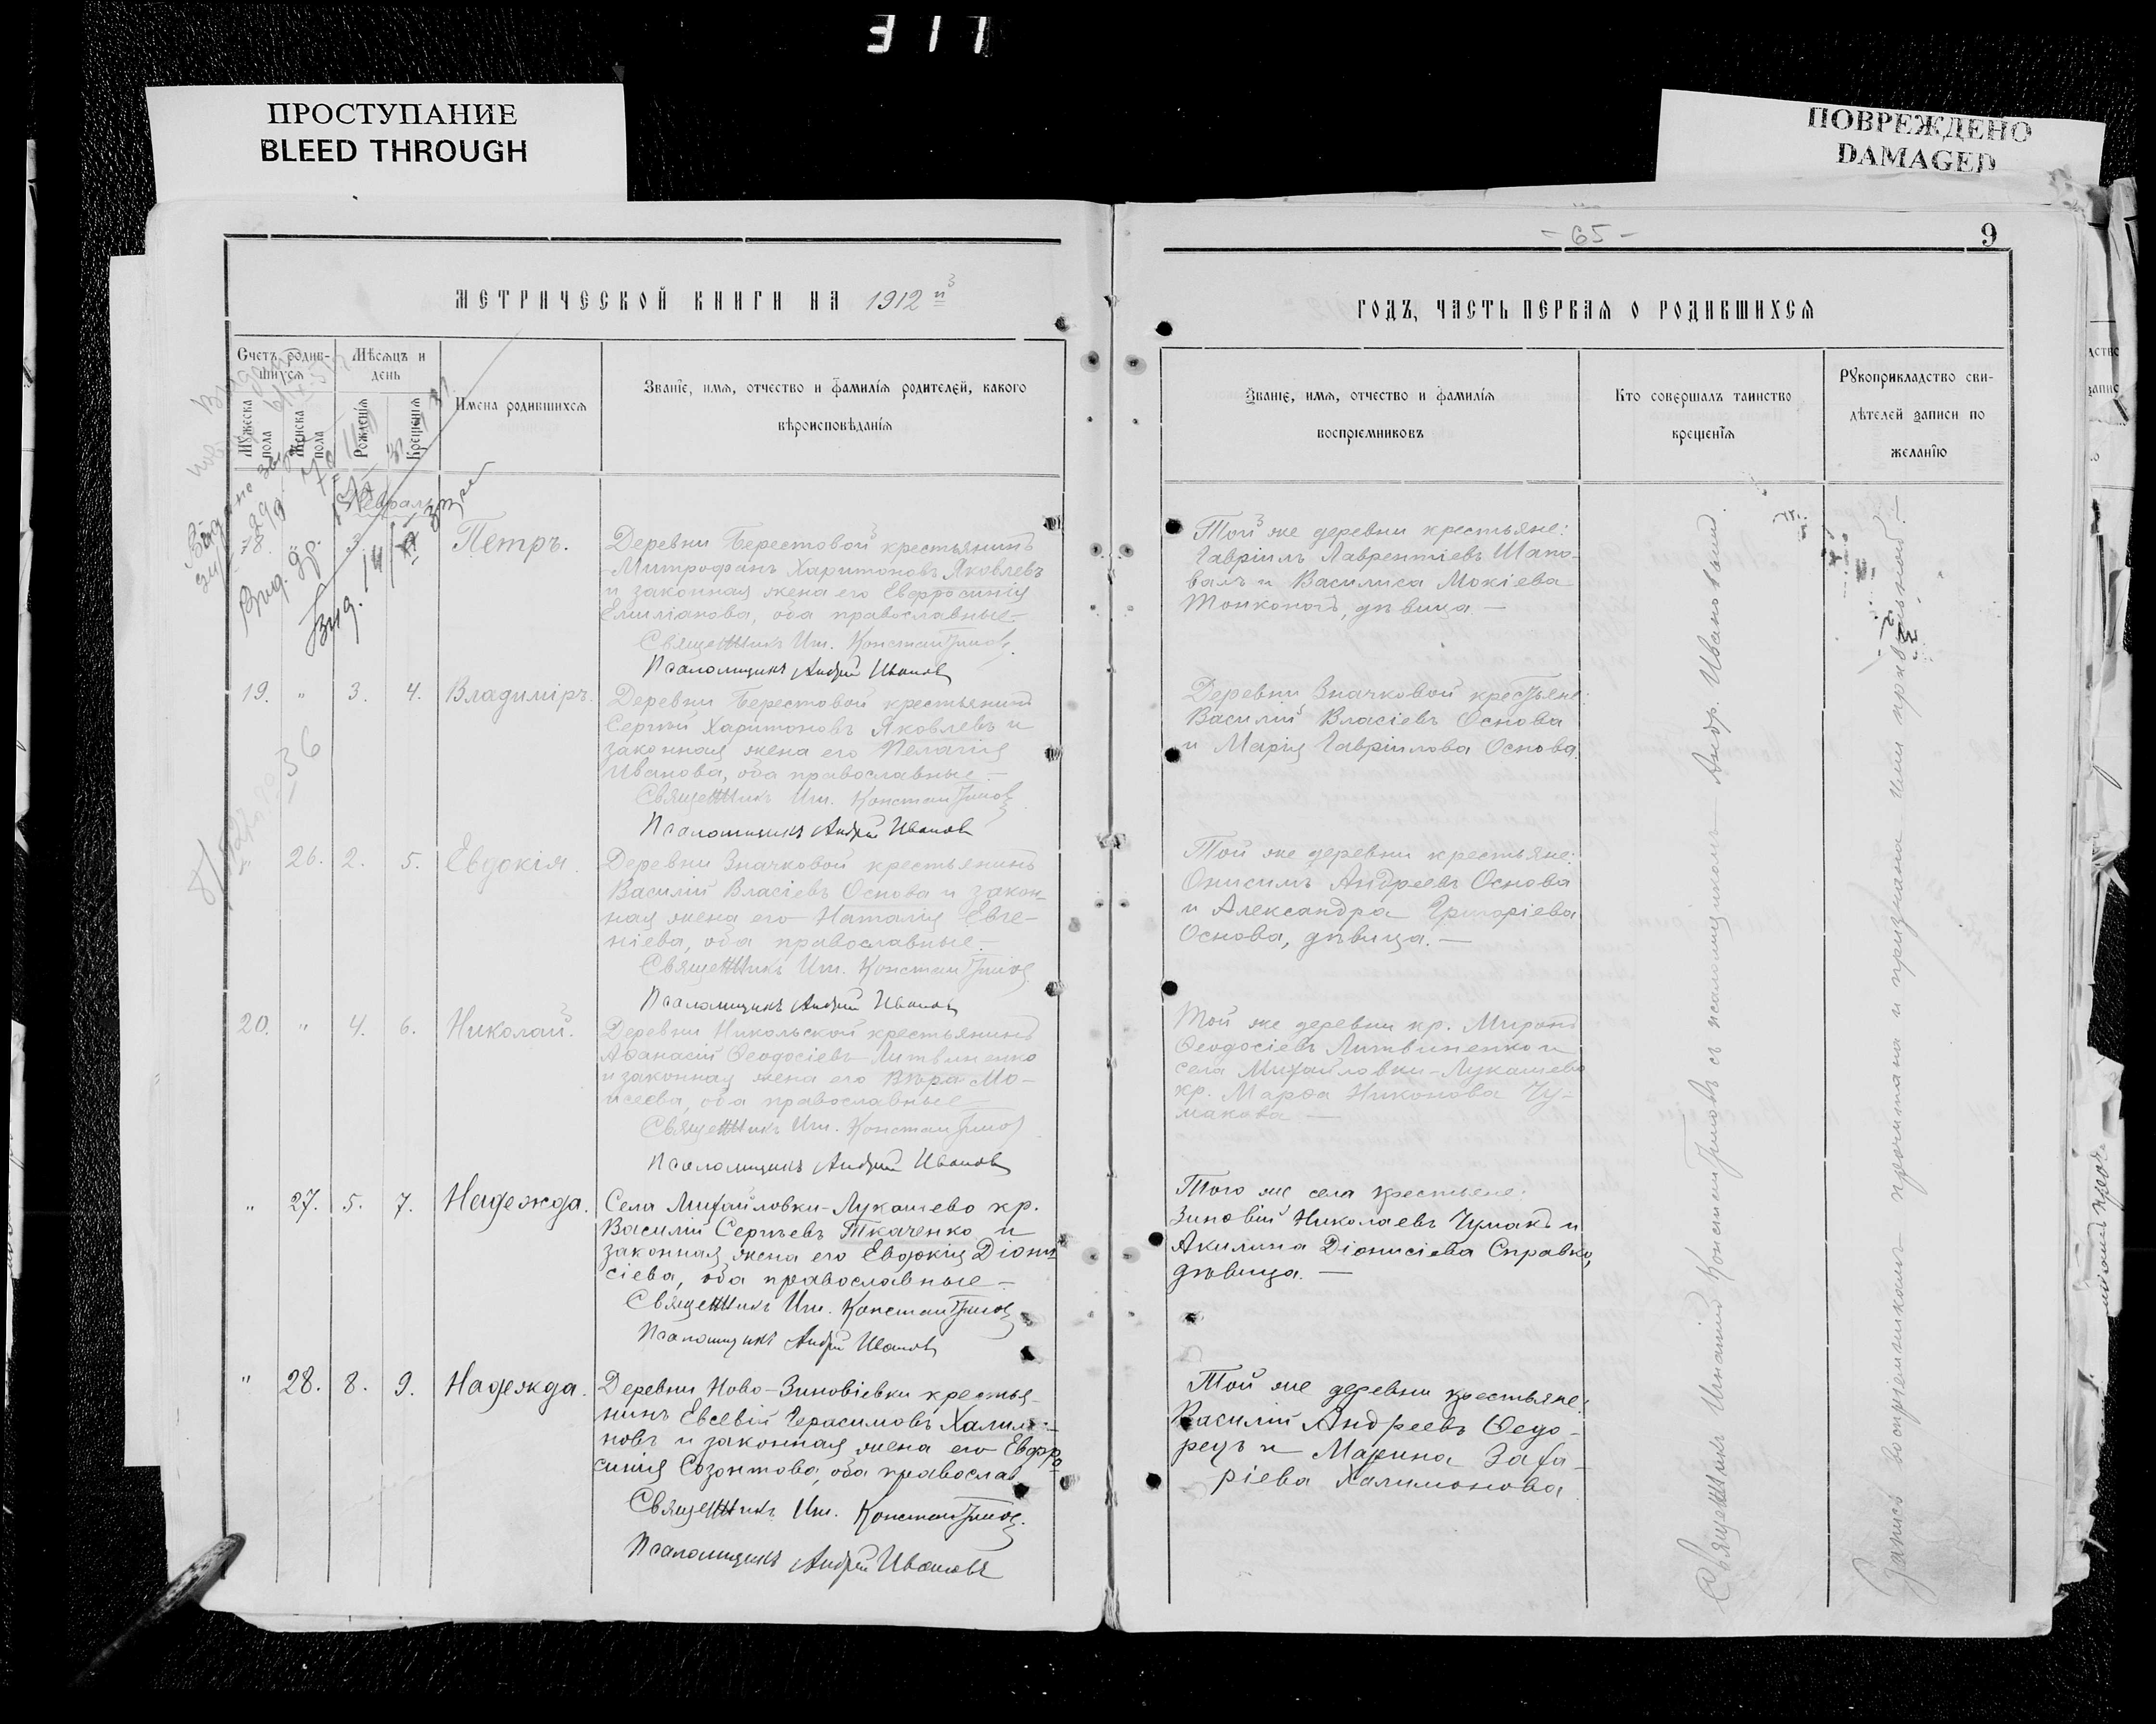 317
ПРОСТУПАНИЕ
BLEED THROUGH
ПОВРЕЖДЕНО
DAMAGED
МЕТРИЧЕСКОЙ КНИГИ НА 1912 й
Счетъ родив-
шихся
Мѣсяцъ и
день
Мужеска
пола
Женска
пола
Рожденія
Крещенія
Имена родившихся
Званіе, имя, отчество и фамилія родителей, какого
вѣроисповѣданія
Февраль
18.
3.
Петръ.
Деревни Берестовой крестьянинъ
Митрофанъ Харитоновъ Яковлевъ
и законная жена его Евфросинія
Емиліанова, оба православные.—
Священникъ Игн. Константиновъ.
Псаломщикъ Андрей Ивановъ
19. " 3. 4. Владиміръ.
Деревни Берестовой крестьянинъ
Сергѣй Харитоновъ Яковлевъ и
законная жена его Пелагія
Иванова, оба православные.—
Священникъ Игн. Константиновъ
Псаломщикъ Андрей Ивановъ
36
" 26. 2. 5. Евдокія.
Деревни Значковой крестьянинъ
Василій Власіевъ Основа и закон-
ная жена его Наталія Евге-
ніева, оба православные.—
Священникъ Игн. Константиновъ
Псаломщикъ Андрей Ивановъ
20. " 4. 6. Николай.
Деревни Никольской крестьянинъ
Аѳанасій Ѳеодосіевъ Литвиненко
и законная жена его Вѣра Мо-
исеева, оба православные—
Священникъ Игн. Константиновъ
Псаломщикъ Андрей Ивановъ
" 27. 5. 7. Надежда.
Села Михайловки-Лукашево кр.
Василій Сергѣевъ Ткаченко и
законная жена его Евдокія Діони-
сіева, оба православные—
Священникъ Игн. Константиновъ
Псаломщикъ Андрей Ивановъ
" 28. 8. 9. Надежда.
Деревни Ново-Зиновіевки крестья-
нинъ Евсевій Герасимовъ Халимо-
новъ и законная жена его Евфро-
синія Созонтова, оба православ
Священникъ Игн. Константиновъ.
Псаломщикъ Андрей Ивановъ
- 65 -
9
ГОДЪ, ЧАСТЬ ПЕРВАЯ О РОДИВШИХСЯ
Званіе, имя, отчество и фамилія
воспріемниковъ
Кто совершалъ таинство
крещенія
Рукоприкладство сви-
дѣтелей записи по
желанію
Той же деревни крестьяне:
Гавріилъ Лаврентіевъ Шапо-
валъ и Василиса Мокіева
Тонконогъ, дѣвица.—
Деревни Значковой крестьяне:
Василій Власіевъ Основа
и Марія Гавріилова Основа.
Той же деревни крестьяне:
Онисимъ Андреевъ Основа
и Александра Григоріева
Основа, дѣвица.—
Той же деревни кр. Миронъ
Ѳеодосіевъ Литвиненко и
села Михайловки-Лукашево
кр. Марѳа Никонова Чу-
макова—
Того же села крестьяне:
Зиновій Николаевъ Чумакъ и
Акилина Діонисіева Справко,
дѣвица.—
Той же деревни крестьяне:
Василій Андреевъ Ѳедо-
рецъ и Марина Заха-
ріева Халимонова
Священникъ Игнатій Константиновъ съ псаломщикомъ Андр. Ивановымъ.
Запись воспріемникомъ прочитана и признана ими правильной.—